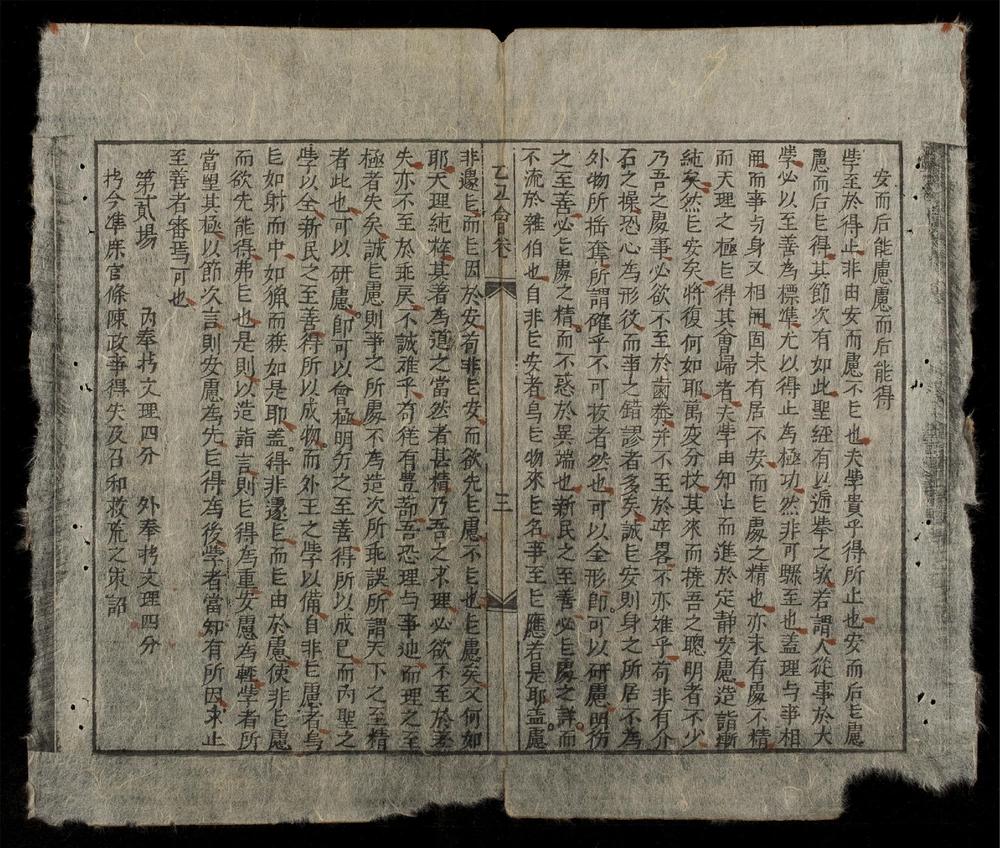 安而后能慮慮而后能得
学至於得止非由安而慮不𠃊也夫学貴乎得所止也安而后𠃊慮
慮而后𠃊得其節次有如此聖経有以逓举之欤若謂人従事於大
学必以至善為標準尤以得止為極功然非可驟至也盖理与事相
用而事与身又相因固未有居不安而𠃊處之精也亦未有處不精
而天理之極𠃊得其會帰者夫学由知止而進於定静安慮造詣漸
純矣然𠃊安矣将復何如耶萬変分投其来而撓吾之聰明者不少
乃吾之處事必欲不至於鹵莽并不至於卒畧不亦难乎苟非有介
石之操恐心為形役而事之錯謬者多矣誠𠃊安則身之所居不為
外物所揺奪所謂確乎不可抜者然也可以全形即可以研慮明徳
之至善必𠃊處之精而不惑於異端也新民之至善必𠃊處之詳而
不流於雜伯也自非𠃊安者烏𠃊物来𠃊名事至𠃊應若是耶盖慮
乙丑會卷
三
非遽𠃊而𠃊因於安若非𠃊安而欲先𠃊慮不𠃊也𠃊慮矣又何如
耶天理純粹其著為道之當然者甚精乃吾之求理必欲不至於差
失亦不至於乖戾不誠难乎苟徒有豊蔀吾恐理与事迆而理之至
極者失矣誠𠃊慮則事之所處不為造次所乖誤所謂天下之至精
者此也可以研慮即可以會極明徳之至善得所以成己而内聖之
学以全新民之至善得所以成物而外王之学以備自非𠃊慮者烏
𠃊如射而中如猟而獲如是耶盖得非遽𠃊而𠃊由於慮使非𠃊慮
而欲先能得弗𠃊也是則以造詣言則𠃊得為重安慮為輕学者所
當望其極以節次言則安慮為先𠃊得為後学者當知有所因求止
至善者審焉可也
第貳場 内奉拷文理四分 外奉拷文理四分
拷今準庶官條陳政事得失及召和救荒之策詔